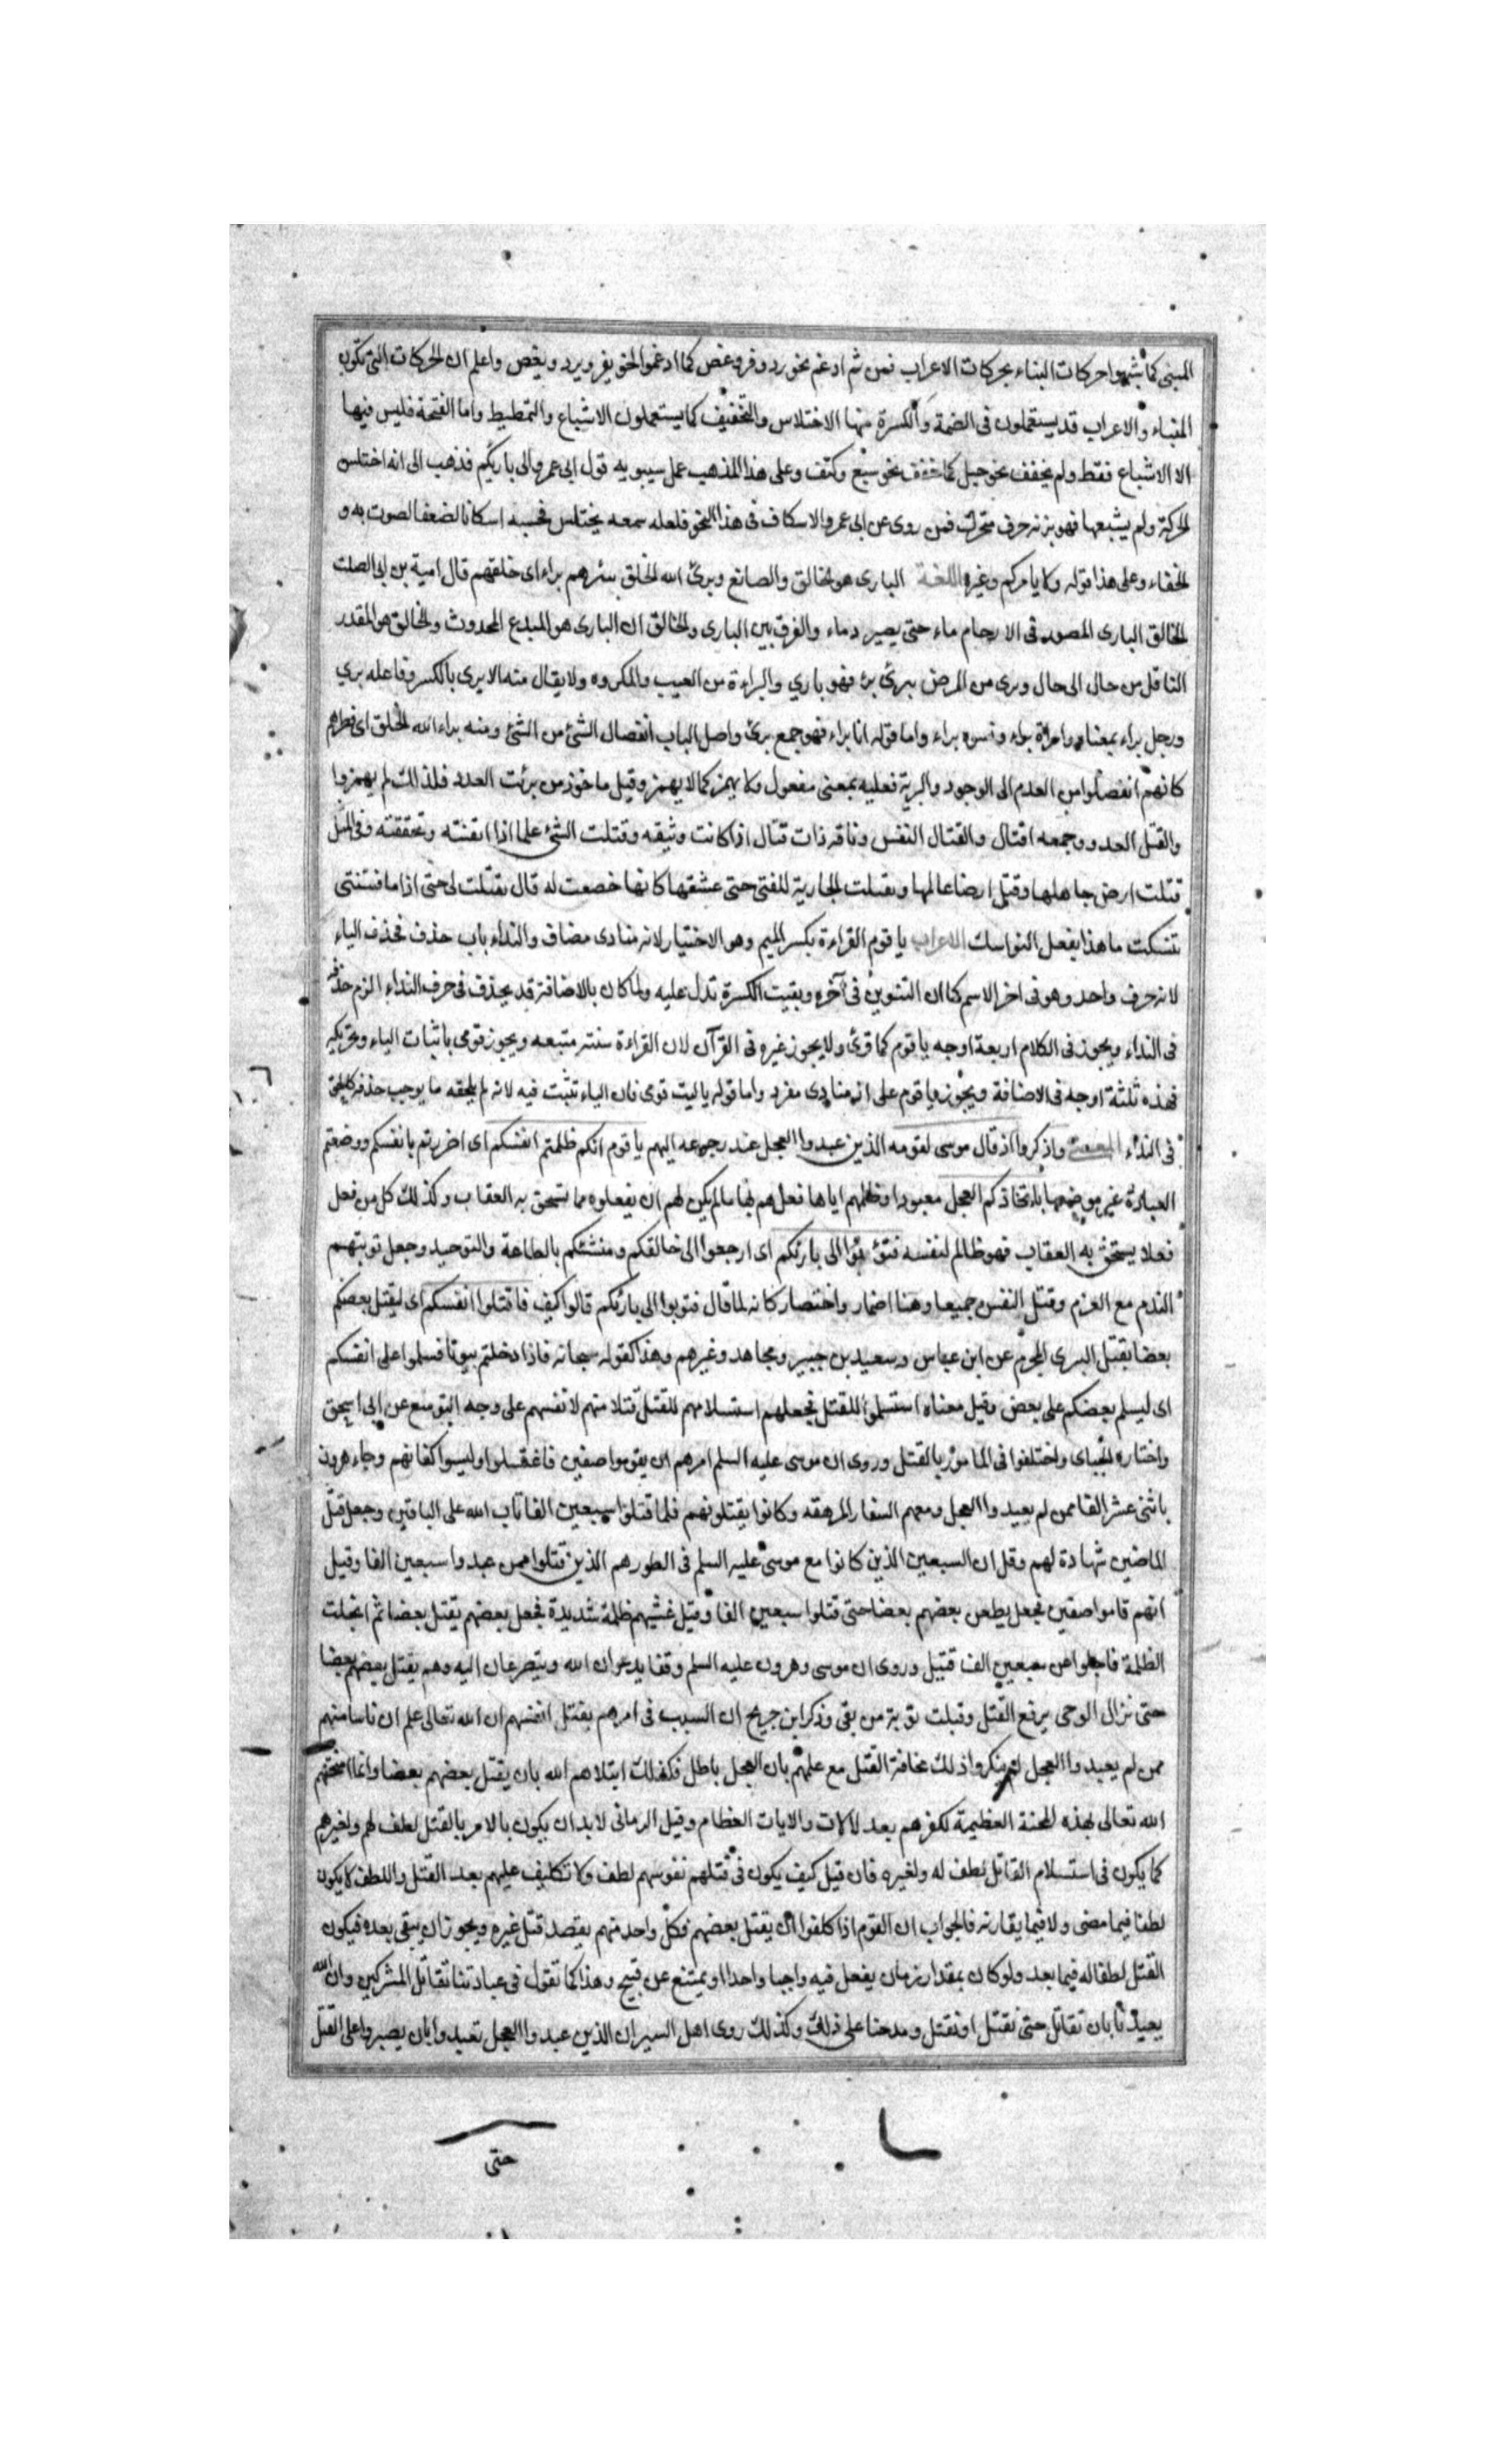 المبنى كما شبهوا حركات البناء بحركات الاعراب فمن ثم ادغم نحو رد وفر وعض كما ادغموا نحو يفر ويرد ويعض واعلم ان الحركات التى تكون
للبناء والاعراب قد يستعملون فى الضمة والكسرة منها الاختلاس والتخفيف كما يستعملون الاشباع والتمطيط واما الفتحة فليس فيها
الا الاشباع فقط ولم يخفف نحو جبل كما خفف نحو سبع وكتف وعلى هذا المذهب عمل سيبويه قول ابى عمرو الى بارئكم فذهب الى انه اختلس
الحركة ولم يشبعها فهو بزنه حرف متحرك فمن روى عن ابى عمرو الاسكان فى هذا النحو فلعله سمعه يختلس فحسبه اسكانا لضعف الصوت به و
الخفاء وعلى هذا قوله ولا يامركم وغيره اللغة البارى هو الخالق والصانع وبرئ الله الخلق يبرئهم براء اى خلقهم قال امية بن ابى الصلت
الخالق البارى المصور فى الارحام ماء حتى يصير دماء والفرق بين البارى والخالق ان البارى هو المبدع المحدوث والخالق هو المقدر
الناقل من حال الى حال وبرى من المرض يبرئ برء فهو باري والبراءة من العيب والمكروه ولا يقال منه الا برى بالكسر وفاعله بري
ورجل براء بمعناه وامراة براء ونسوه براء واما قوله انا براء فهو جمع برئ واصل الباب انفصال الشئ من الشئ ومنه براء الله الخلق اى فطرهم
كانهم انفصلوا من العدم الى الوجود والبرية فعليه بمعنى مفعول ولا يهمز كما لا يهمز وقيل ماخوذ من بريت العدد فلذلك لم يهمزوا
والقتل العدو وجمعه اقتال والقتال النفس وناقه ذات قتال اذا كانت وثيقه وقتلت الشئ علما اذا اتقنته وتحققته وفى المثل
قتلت ارض جاهلها وقتل ارضا عالمها وتقتلت الجارية للفتى حتى عشقها كانها خضعت له قال تقتلت لى حتى اذا ما قتلتنى
تنسكت ما هذا بفعل النواسك الاعراب يا قوم القراءة بكسر الميم وهو الاختيار لانه منادى مضاف والنداء باب حذف فحذف الياء
لانه حرف واحد وهو فى اخر الاسم كما ان التنوين فى آخره وبقيت الكسرة تدل عليه ولما كان بالاضافة قد يحذف فى حرف النداء لزم حذفه
فى النداء ويجوز فى الكلام اربعة اوجه يا قوم كما قرئ ولا يجوز غيره فى القرآن لان القراءة سنته متبعه ويجوز قومى باثبات الياء وتحريكه
فهذه ثلثة اوجه فى الاضافة ويجوز يا قوم على انه منادى مفرد واما قوله يا ليت قومى فان الياء تثبت فيه لانه لم يلحقه ما يوجب حذفه كما لحق
فى النداء المعنى واذكروا اذ قال موسى لقومه الذين عبدوا العجل عند رجوعه اليهم يا قوم انكم ظلمتم انفسكم اى اضررتم بانفسكم ووضعتم
العبادة غير موضعها باتخاذكم العجل معبودا وظلمهم اياها فعلهم بها ما لم يكن لهم ان يفعلوه مما يستحق به العقاب وكذلك كل من فعل
فعلا يستحق به العقاب فهو ظالم لنفسه فتوبوا الى بارئكم اى ارجعوا الى خالقكم ومنشئكم بالطاعة والتوحيد وجعل توبتهم
الندم مع العزم وقتل النفس جميعا وهنا اضمار واختصار كانه لما قال فتوبوا الى بارئكم قالوا كيف فاقتلوا انفسكم اى ليقتل بعضكم
بعضا بقتل البرى المجرم عن ابن عباس وسعيد بن جبير ومجاهد وغيرهم وهذا كقوله سبحانه فاذا دخلتم بيوتا فسلموا على انفسكم
اى ليسلم بعضكم على بعض وقيل معناه استسلموا للقتل فجعلهم استسلامهم للقتل قتلا منهم لانفسهم على وجه التوسع عن ابى اسحق
واختاره الجباى واختلفوا فى المامور بالقتل وروى ان موسى عليه السلم امرهم ان يقوموا صفين فاغتسلوا ولبسوا اكفانهم وجاء هرون
باثنى عشر الفا ممن لم يعبدوا العجل ومعهم الشفار المرهقه وكانوا يقتلونهم فلما قتلوا سبعين الفا تاب الله على الباقين وجعل قتل
الماضين شهادة لهم وقل ان السبعين الذين كانوا مع موسى عليه السلم فى الطورهم الذين قتلوا ممن عبدوا سبعين الفا وقيل
انهم قاموا صفين فجعل يطعن بعضهم بعضا حتى قتلوا سبعين الفا وقيل غشيهم ظلمة شديدة فجعل بعضهم يقتل بعضا ثم انجلت
الظلمة فاجلوا عن سبعين الف قتيل وروى ان موسى وهرون عليه السلم وقفا يدعوان الله ويتضرعان اليه وهم يقتل بعضهم بعضا
حتى نزال الوحى برفع القتل وقبلت توبة من بقى وذكر ابن جريج ان السبب فى امرهم بقتل انفسهم ان الله تعالى علم ان ناسا منهم
ممن لم يعبدوا العجل لم ينكروا ذلك مخافة القتل مع علمهم بان العجل باطل فلذلك ابتلاهم الله بان يقتل بعضهم بعضا وانما امتحنهم
الله تعالى بهذه المحنة العظيمة لكفرهم بعد الالات والايات العظام وقيل الرمانى لابد ان يكون بالامر بالقتل لطف لهم ولغيرهم
كما يكون فى استسلام القاتل لطف له ولغيره فان قيل كيف يكون فى قتلهم نفوسهم لطف ولا تكليف عليهم بعد القتل واللطف لا يكون
لطفا فيما مضى ولا فيما يقارنه فالجواب ان القوم اذا كلفوا ان يقتل بعضهم فكل واحد منهم يقصد قتل غيره ويجوز ان يبقى بعده فيكون
القتل لطفا له فيما بعد ولو كان بمقدار زمان يفعل فيه واجبا واحدا او يمتنع عن قبيح وهذا كما تقول فى عبادتنا تقاتل المشركين وان الله
يعبدنا بان تقاتل حتى نقتل او نقتل ومدحنا على ذلك وكذلك روى اهل السير ان الذين عبدوا العجل تعبدوا بان يصبروا على القتل
حتى